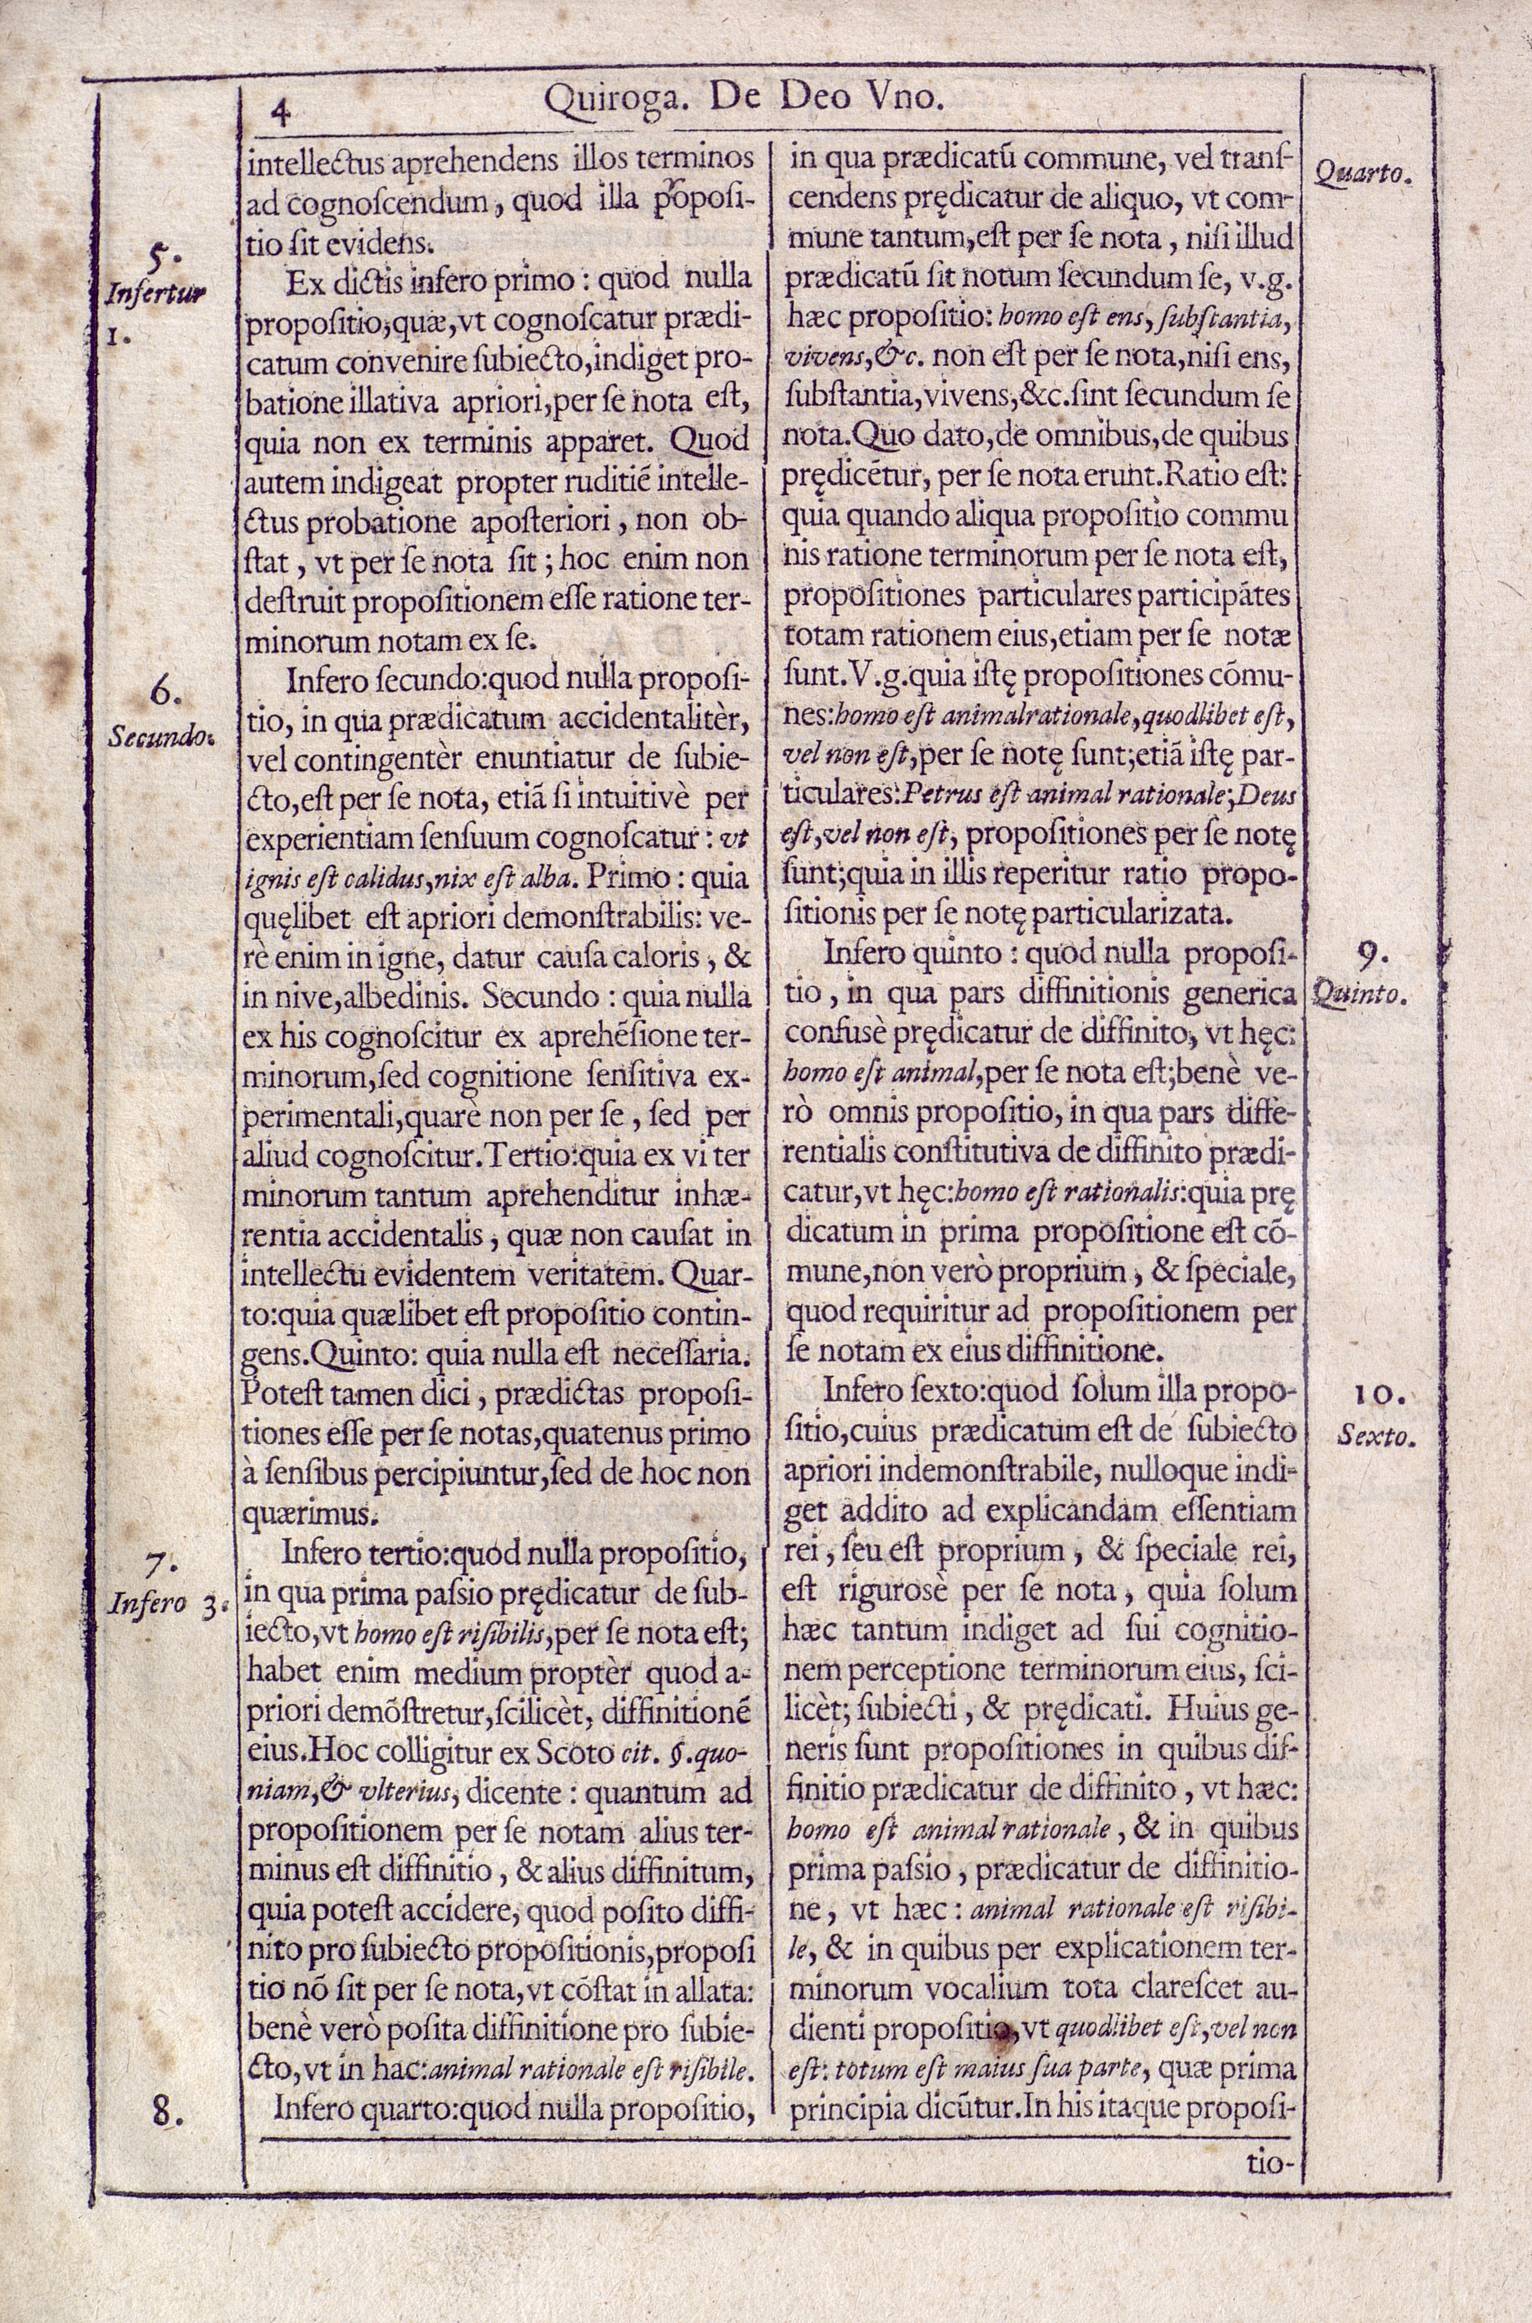 4
Quiroga. De Deo Vno.
intellectus aprehendens illos terminos
ad cognoſcendum, quod illa propoſi-
tio ſit evidens.
5.
Infertur
1.
Ex dictis infero primo: quod nulla
propoſitio, quæ, vt cognoſcatur prædi-
catum convenire ſubiecto, indiget pro-
batione illativa apriori, per ſe nota est,
quia non ex terminis apparet. Quod
autem indigeat propter ruditiẽ intelle-
ctus probatione apoſteriori, non ob-
ſtat, vt per ſe nota ſit; hoc enim non
deſtruit propoſitionem eſſe ratione ter-
minorum notam ex ſe.
6.
Secundo.
Infero ſecundo: quod nulla propoſi-
tio, in qua prædicatum accidentalitèr,
vel contingentèr enuntiatur de ſubie-
cto, eſt per ſe nota, etiã ſi intuitivè per
experientiam ſenſuum cognoſcatur: vt
ignis eſt calidus, nix eſt alba. Primo: quia
quęlibet eſt apriori demonſtrabilis: ve-
rè enim in igne, datur cauſa caloris, &
in nive, albedinis. Secundo: quia nulla
ex his cognoſcitur ex aprehẽſione ter-
minorum, ſed cognitione ſenſitiva ex-
perimentali, quarè non per ſe, ſed per
aliud cognoſcitur. Tertio: quia ex vi ter
minorum tantum aprehenditur inhæ-
rentia accidentalis, quæ non cauſat in
intellectu evidentem veritatem. Quar-
to: quia quælibet eſt propoſitio contin-
gens. Quinto: quia nulla eſt neceſſaria.
Poteſt tamen dici, prædictas propoſi-
tiones eſſe per ſe notas, quatenus primo
à ſenſibus percipiuntur, ſed de hoc non
quærimus.
7.
Infero 3.
Infero tertio: quod nulla propoſitio,
in qua prima paſsio prędicatur de ſub-
iecto, vt homo eſt riſibilis, per ſe nota eſt;
habet enim medium proptèr quod a-
priori demõſtretur, ſcilicèt, diffinitionẽ
eius. Hoc colligitur ex Scoto cit. §. quo-
niam, & vlterius, dicente: quantum ad
propoſitionem per ſe notam alius ter-
minus eſt diffinitio, & alius diffinitum,
quia poteſt accidere, quod poſito diffi-
nito pro ſubiecto propoſitionis, propoſi
tio nõ ſit per ſe nota, vt cõſtat in allata:
benè verò poſita diffinitione pro ſubie-
cto, vt in hac: animal rationale eſt riſibile.
8.
Infero quarto: quod nulla propoſitio,
Quarto.
in qua prædicatũ commune, vel tranſ-
cendens prędicatur de aliquo, vt com-
mune tantum, eſt per ſe nota, niſi illud
prædicatũ ſit notum ſecundum ſe, v.g.
hæc propoſitio: homo eſt ens, ſubſtantia,
vivens, &c. non eſt per ſe nota, niſi ens,
ſubſtantia, vivens, &c. ſint ſecundum ſe
nota. Quo dato, de omnibus, de quibus
prędicẽtur, per ſe nota erunt. Ratio eſt:
quia quando aliqua propoſitio commu
nis ratione terminorum per ſe nota eſt,
propoſitiones particulares participãtes
totam rationem eius, etiam per ſe notæ
ſunt. V.g. quia iſtę propoſitiones cõmu-
nes: homo eſt animal rationale, quodlibet eſt,
vel non eſt, per ſe notę ſunt; etiã iſtę par-
ticulares: Petrus eſt animal rationale; Deus
eſt, vel non eſt, propoſitiones per ſe notę
ſunt; quia in illis reperitur ratio propo-
ſitionis per ſe notę particularizata.
9.
Quinto.
Infero quinto: quod nulla propoſi-
tio, in qua pars diffinitionis generica
confuſè prędicatur de diffinito, vt hęc:
homo eſt animal, per ſe nota eſt; benè ve-
rò omnis propoſitio, in qua pars diffe-
rentialis conſtitutiva de diffinito prædi-
catur, vt hęc: homo eſt rationalis: quia prę
dicatum in prima propoſitione eſt cõ-
mune, non verò proprium, & ſpeciale,
quod requiritur ad propoſitionem per
ſe notam ex eius diffinitione.
10.
Sexto.
Infero ſexto: quod ſolum illa propo-
ſitio, cuius prædicatum eſt de ſubiecto
apriori indemonſtrabile, nulloque indi-
get addito ad explicandam eſſentiam
rei, ſeu eſt proprium, & ſpeciale rei,
eſt riguroſè per ſe nota, quia ſolum
hæc tantum indiget ad ſui cognitio-
nem perceptione terminorum eius, ſci-
licèt; ſubiecti, & prędicati. Huius ge-
neris ſunt propoſitiones in quibus dif-
finitio prædicatur de diffinito, vt hæc:
homo eſt animal rationale, & in quibus
prima paſsio, prædicatur de diffinitio-
ne, vt hæc: animal rationale eſt riſibi-
le, & in quibus per explicationem ter-
minorum vocalium tota clareſcet au-
dienti propoſitio, vt quodlibet eſt, vel non
eſt: totum eſt maius ſua parte, quæ prima
principia dicũtur. In his itaque propoſi-
tio-